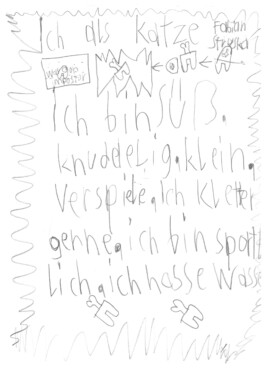 Ich als Katze
Fabian
Ich bin süß.
knuddelig, klein,
verspielt, Ich kletter
gerne, ich bin sport
lich, ich hasse Wass